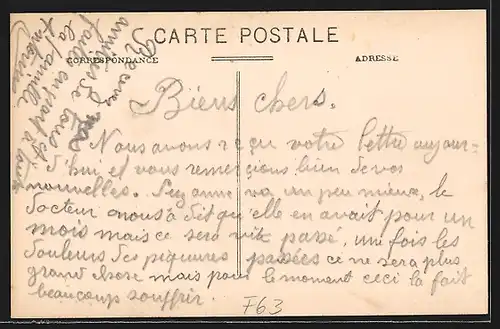 CARTE POSTALE
CORRESPONDANCE
ADRESSE
Biens chers.
Nous avons reçu votre lettre aujour-
d'hui et vous remercions bien de vos
nouvelles. Suzanne va un peu mieux, le
docteur nous a dit qu'elle en avait pour un
mois mais ce sera vite passé, une fois les
douleurs des piquures passées ce ne sera plus
grand chose mais pour le moment ceci la fait
beaucoup souffrir.
Recevez
amitiés de tous et
faites en part à toute
la famille
F63